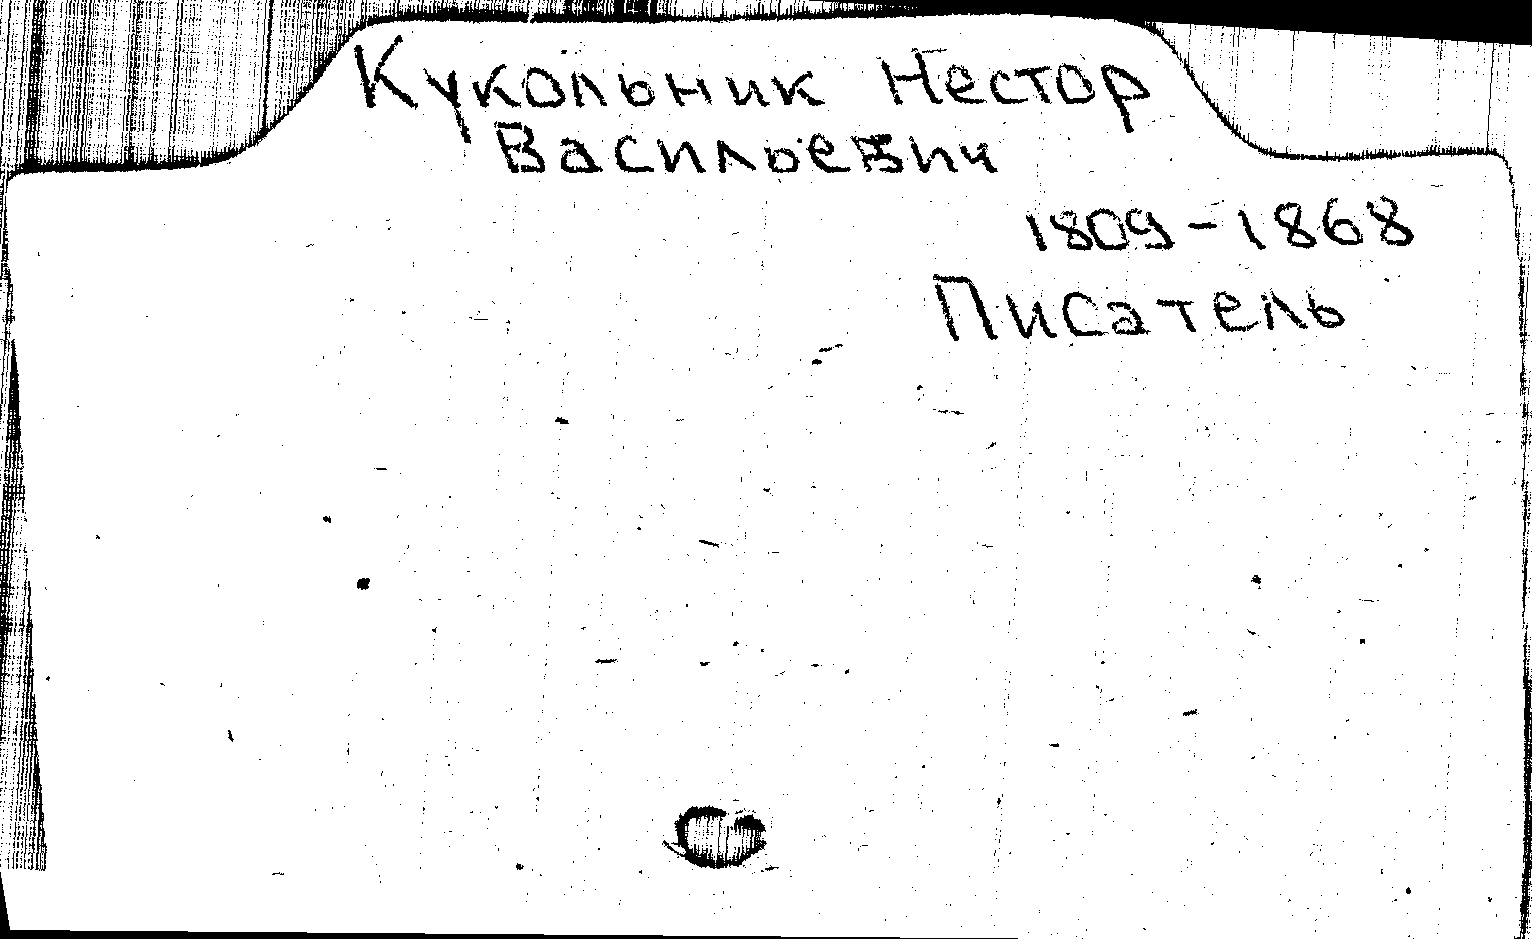 Кукольник Нестор
Васильевич
1809-1868
Писатель